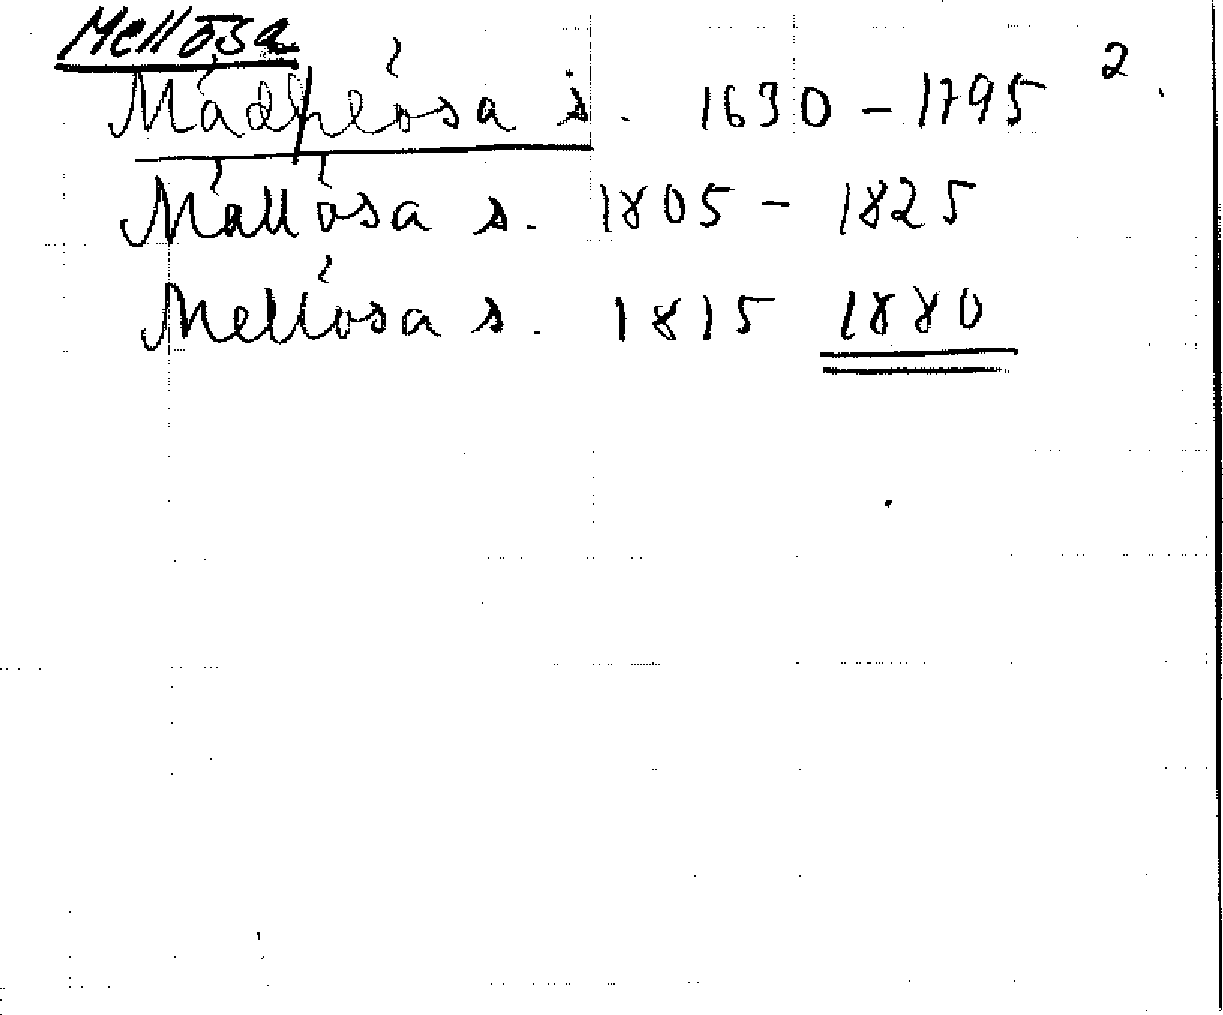 Mellösa
2
Mädhlösa s. 1630 – 1795
Mällösa s. 1805 – 1825
Mellösa s. 1815 1880